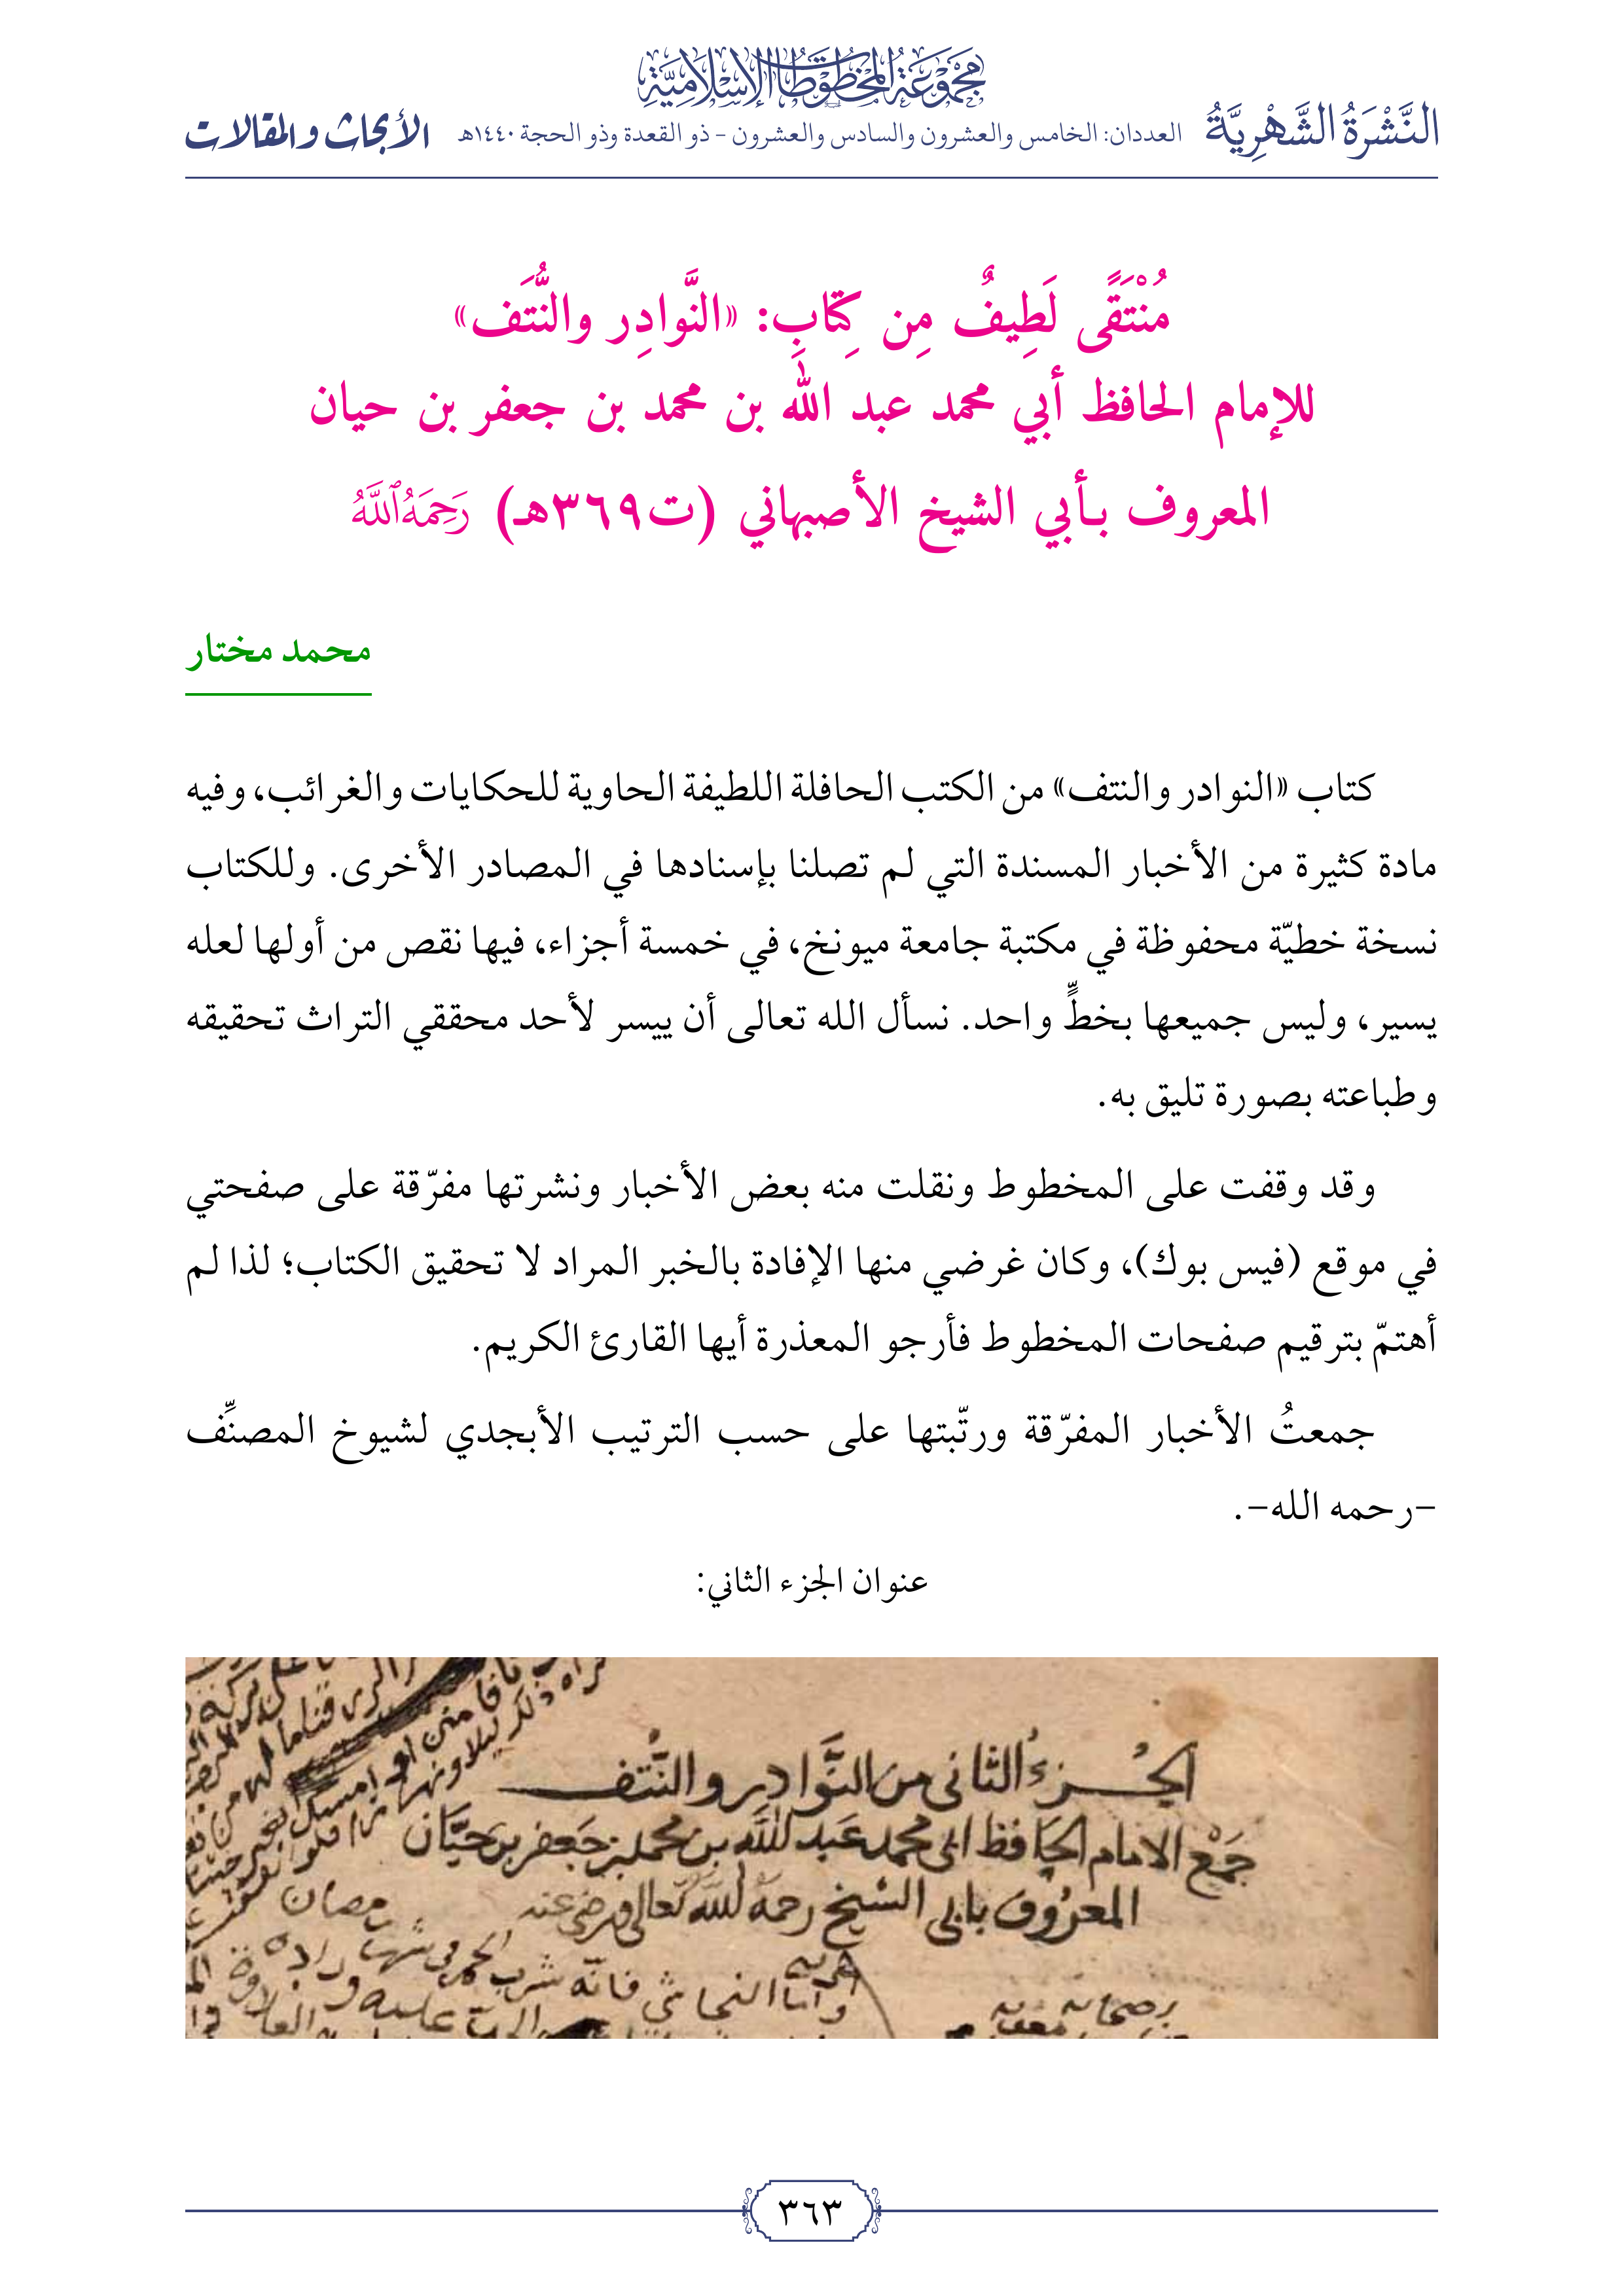 مَجْمُوعَةُ المَخْطُوطَاتِ الإِسْلَامِيَّةِ
النَّشْرَةُ الشَّهْرِيَّةُ العددان: الخامس والعشرون والسادس والعشرون - ذو القعدة وذو الحجة ١٤٤٠هـ الأبحاث والمقالات
مُنْتَقًى لَطِيفٌ مِن كِتَابِ: «النَّوادِر والنُّتَف»
للإمام الحافظ أبي محمد عبد الله بن محمد بن جعفر بن حيان
المعروف بـأبي الشيخ الأصبهاني (ت٣٦٩هـ) رَحِمَهُ ٱللَّهُ
محمد مختار
كتاب «النوادر والنتف» من الكتب الحافلة اللطيفة الحاوية للحكايات والغرائب، وفيه
مادة كثيرة من الأخبار المسندة التي لم تصلنا بإسنادها في المصادر الأخرى. وللكتاب
نسخة خطيّة محفوظة في مكتبة جامعة ميونخ، في خمسة أجزاء، فيها نقص من أولها لعله
يسير، وليس جميعها بخطٍّ واحد. نسأل الله تعالى أن ييسر لأحد محققي التراث تحقيقه
وطباعته بصورة تليق به.
وقد وقفت على المخطوط ونقلت منه بعض الأخبار ونشرتها مفرّقة على صفحتي
في موقع (فيس بوك)، وكان غرضي منها الإفادة بالخبر المراد لا تحقيق الكتاب؛ لذا لم
أهتمّ بترقيم صفحات المخطوط فأرجو المعذرة أيها القارئ الكريم.
جمعتُ الأخبار المفرّقة ورتّبتها على حسب الترتيب الأبجدي لشيوخ المصنِّف
-رحمه الله-.
عنوان الجزء الثاني:
الجُزءُ الثانى من النَّوادِر والنُّتف
جَمْع الامام الحَافظ ابى محمد عَبد الله بن محمد بن جَعفر بن حَيَّان
المعرُوف بابى الشيخ رحمهُ الله تعالى ورضى عنه
واما النجاشي فانّه شرب الخمر فى
٣٦٣